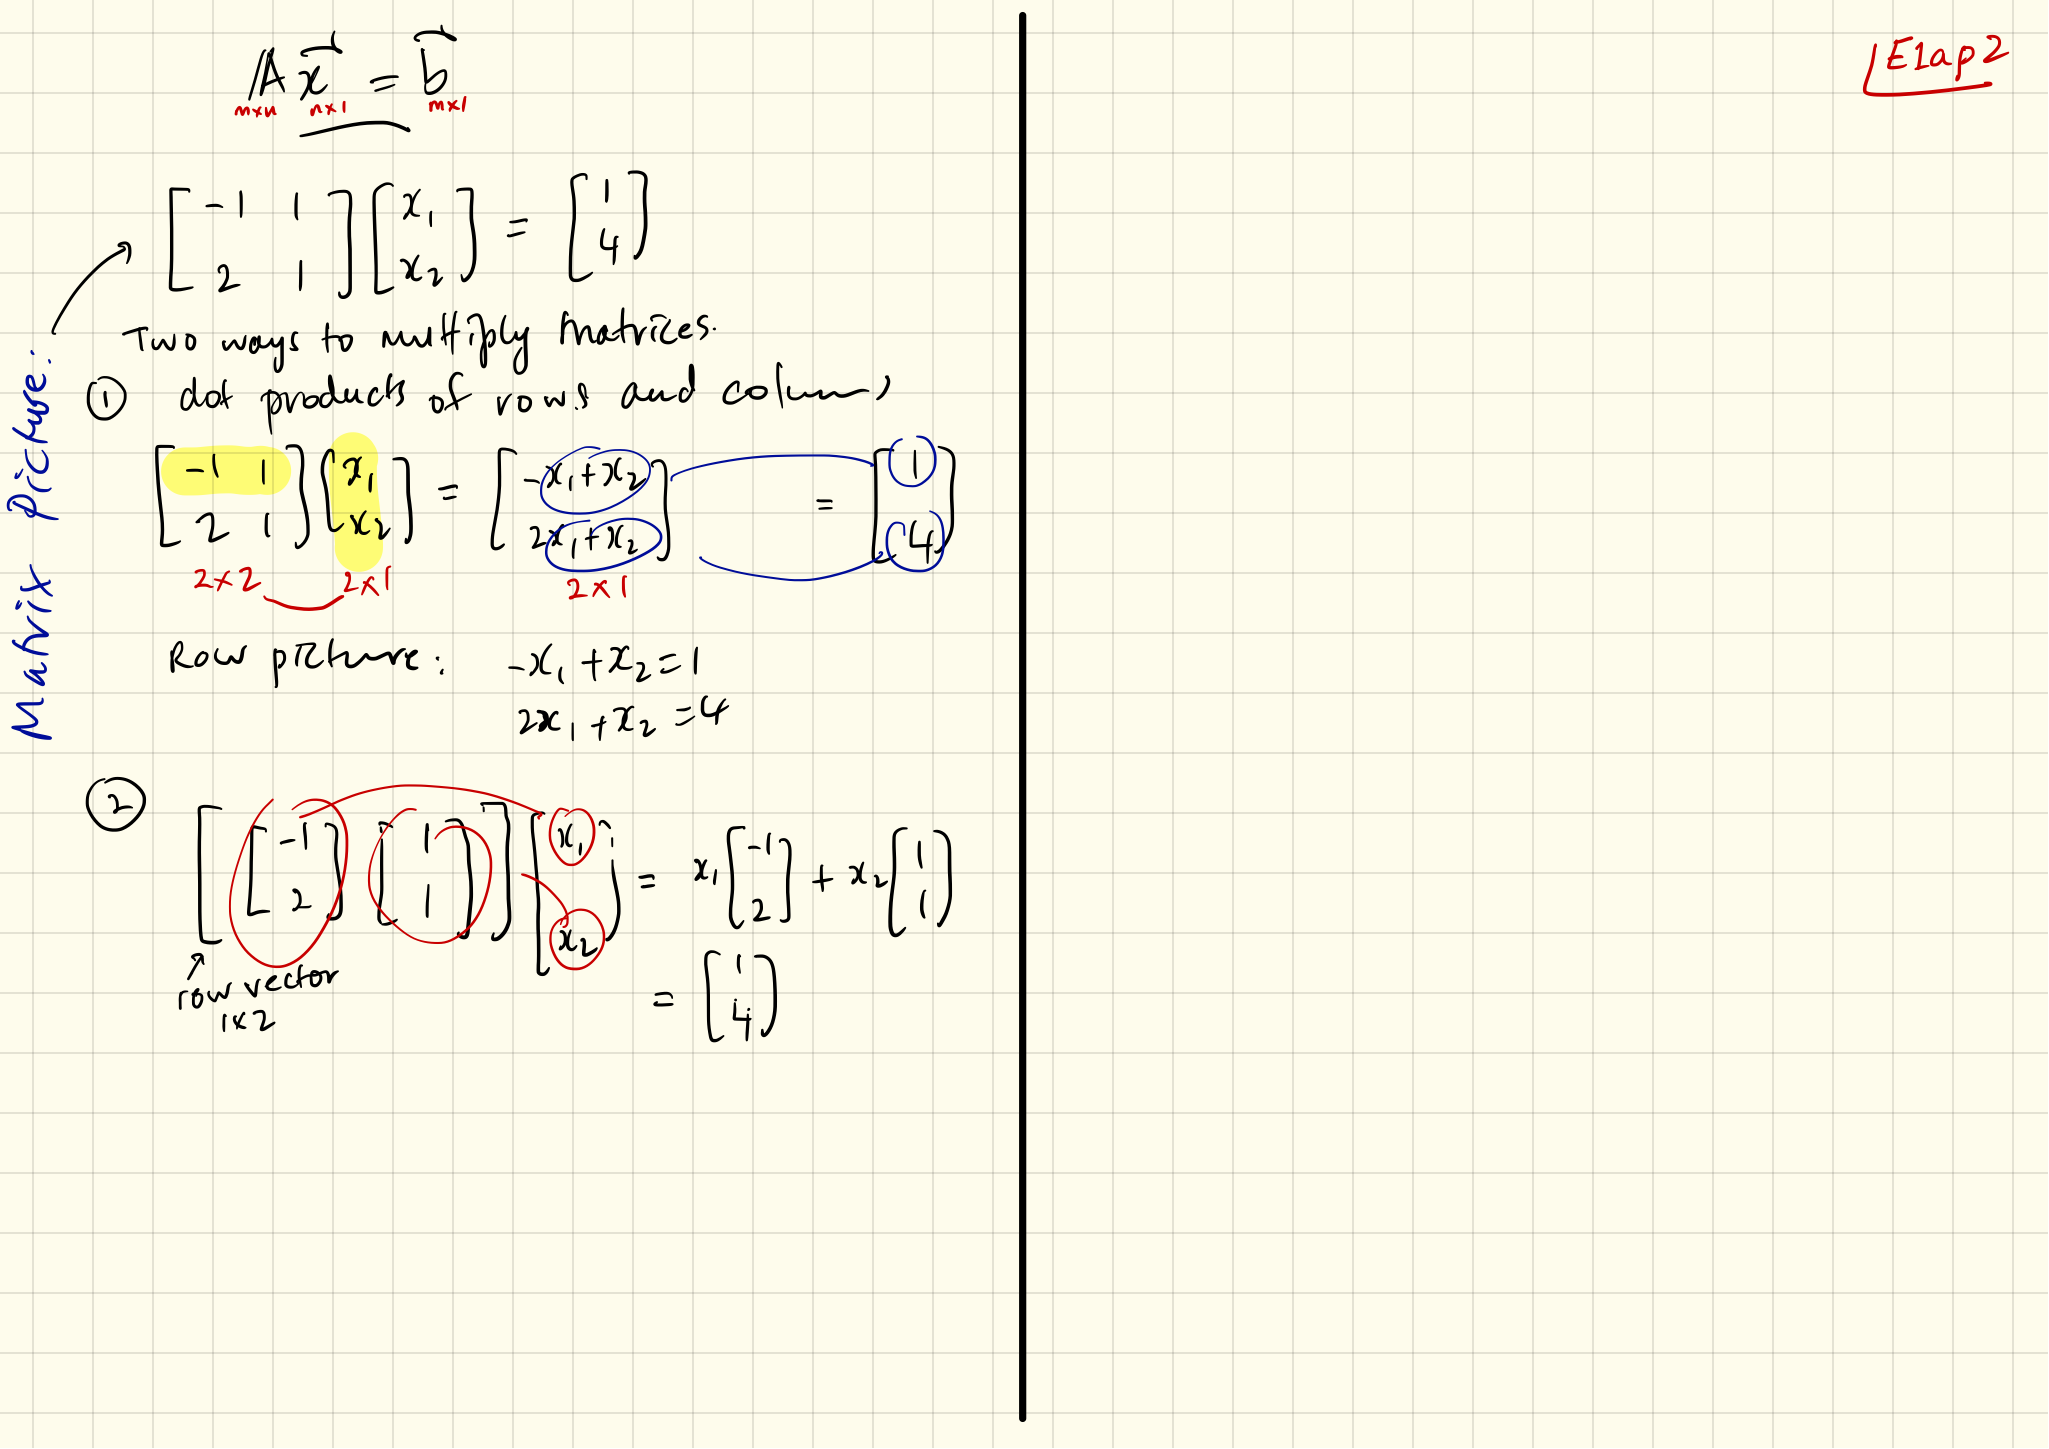 A x⃗ = b⃗
m×n n×1 m×1
E1ap2
[-1 1; 2 1] [x₁; x₂] = [1; 4]
Matrix Picture:
Two ways to multiply Matrices.
① dot products of rows and columns
[-1 1; 2 1] [x₁; x₂] = [-x₁+x₂; 2x₁+x₂] = [1; 4]
2×2 2×1 2×1
Row picture: -x₁+x₂=1
2x₁+x₂=4
② [[-1; 2] [1; 1]] [x₁; x₂] = x₁[-1; 2] + x₂[1; 1]
= [1; 4]
row vector
1×2